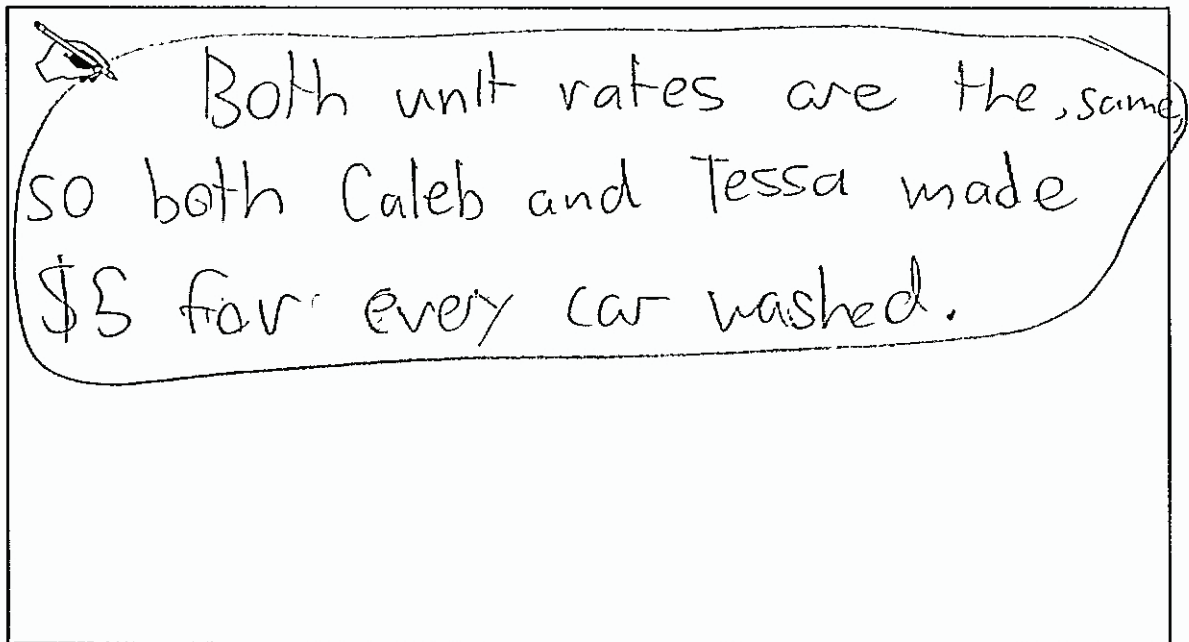 Both unit rates are the same,
so both Caleb and Tessa made
$5 for every car washed.